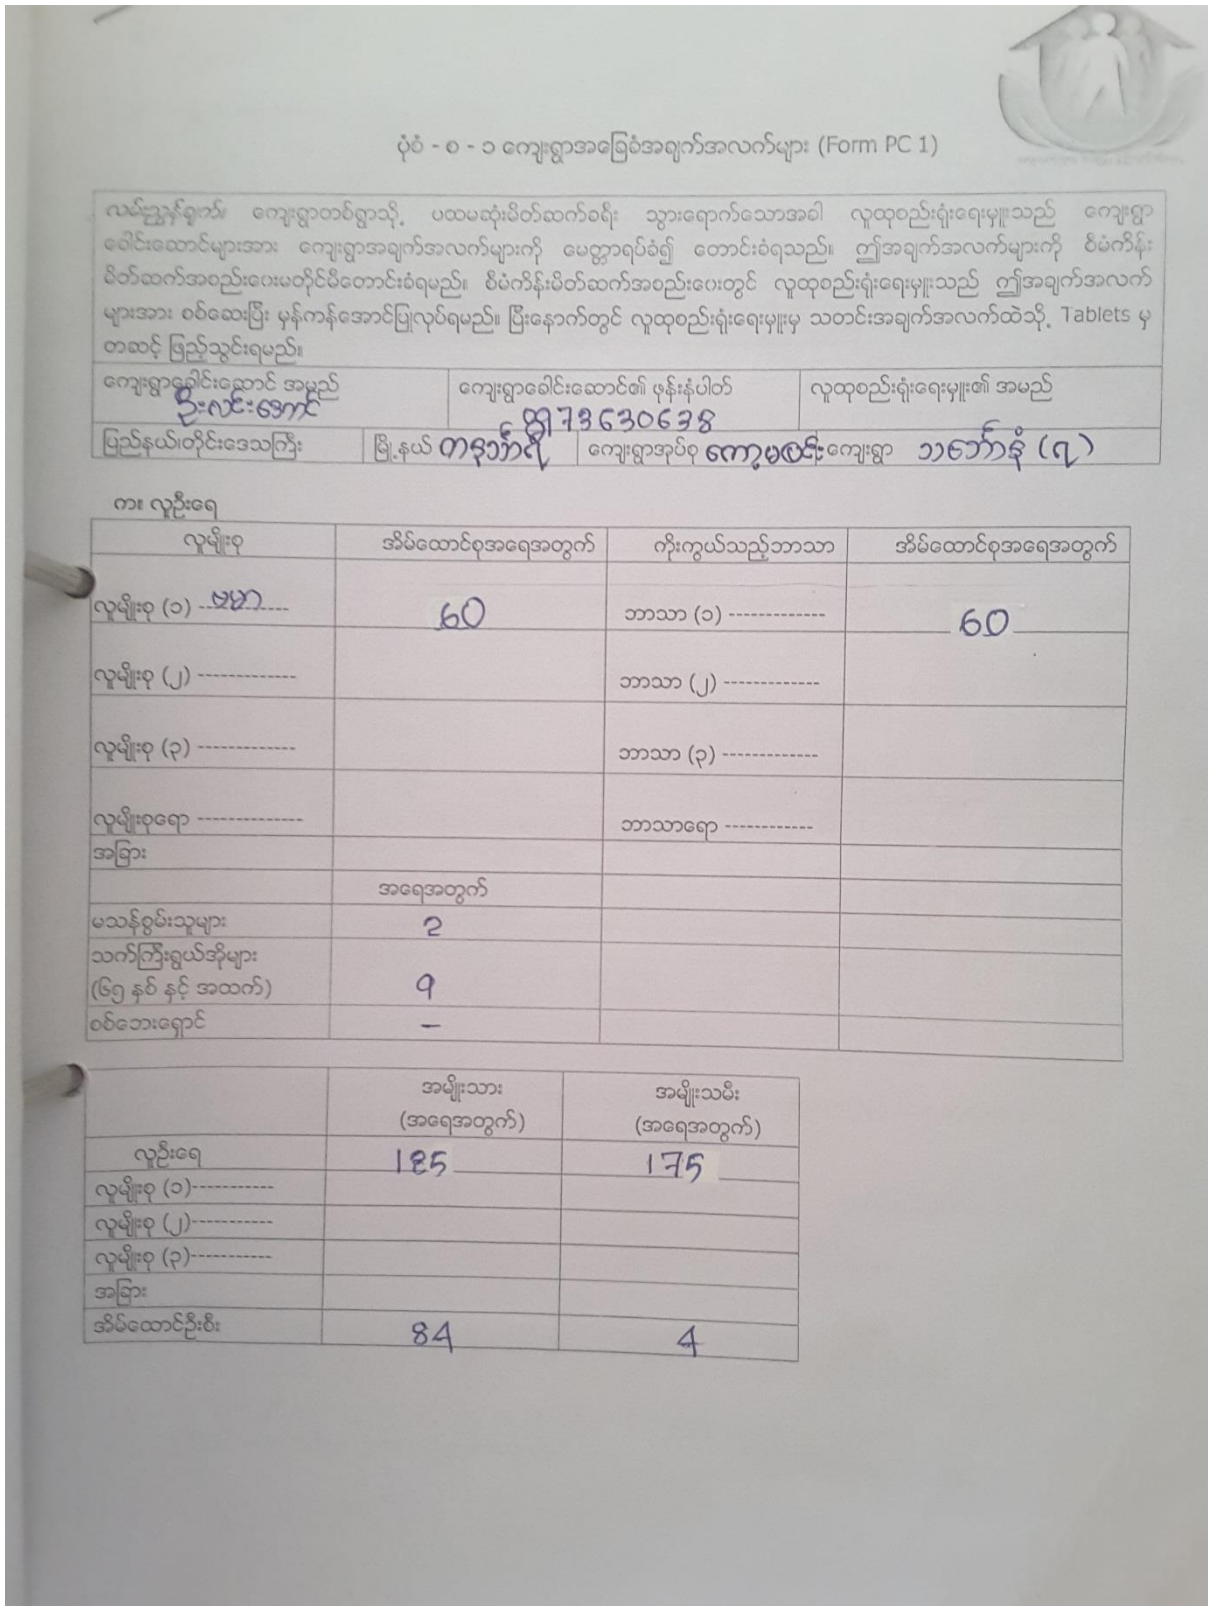 ပုံစံ - စ - ၁ ကျေးရွာအခြေခံအချက်အလက်များ (Form PC 1)
လမ်းညွှန်ချက်။ ကျေးရွာတစ်ရွာသို့ ပထမဆုံးမိတ်ဆက်ခရီး သွားရောက်သောအခါ လူထုစည်းရုံးရေးမှူးသည် ကျေးရွာ
ခေါင်းဆောင်များအား ကျေးရွာအချက်အလက်များကို မေတ္တာရပ်ခံ၍ တောင်းခံရသည်။ ဤအချက်အလက်များကို စီမံကိန်း
မိတ်ဆက်အစည်းဝေးမတိုင်မီတောင်းခံရမည်။ စီမံကိန်းမိတ်ဆက်အစည်းဝေးတွင် လူထုစည်းရုံးရေးမှူးသည် ဤအချက်အလက်
များအား စစ်ဆေးပြီး မှန်ကန်အောင်ပြုလုပ်ရမည်။ ပြီးနောက်တွင် လူထုစည်းရုံးရေးမှူးမှ သတင်းအချက်အလက်ထဲသို့ Tablets မှ
တဆင့် ဖြည့်သွင်းရမည်။
ကျေးရွာခေါင်းဆောင် အမည် ကျေးရွာခေါင်းဆောင်၏ ဖုန်းနံပါတ် လူထုစည်းရုံးရေးမှူး၏ အမည်
ဦးလင်းအောင်
ပြည်နယ်၊တိုင်းဒေသကြီး မြို့နယ် တနင်္သာရီ ကျေးရွာအုပ်စု ကော့မပြင်း ကျေးရွာ သင်္ဘောနံ (ရ)
က။ လူဦးရေ
လူမျိုးစု အိမ်ထောင်စုအရေအတွက် ကိုးကွယ်သည့်ဘာသာ အိမ်ထောင်စုအရေအတွက်
လူမျိုးစု (၁) ဗမာ 60 ဘာသာ (၁) ------------- 60
လူမျိုးစု (၂) ------------- ဘာသာ (၂) -------------
လူမျိုးစု (၃) ------------- ဘာသာ (၃) -------------
လူမျိုးစုရော -------------- ဘာသာရော ------------
အခြား
အရေအတွက်
မသန်စွမ်းသူများ 2
သက်ကြီးရွယ်အိုများ
(၆၅ နှစ် နှင့် အထက်) 9
စစ်ဘေးရှောင် –
အမျိုးသား အမျိုးသမီး
(အရေအတွက်) (အရေအတွက်)
လူဦးရေ 185 175
လူမျိုးစု (၁)-----------
လူမျိုးစု (၂)-----------
လူမျိုးစု (၃)-----------
အခြား
အိမ်ထောင်ဦးစီး 84 4